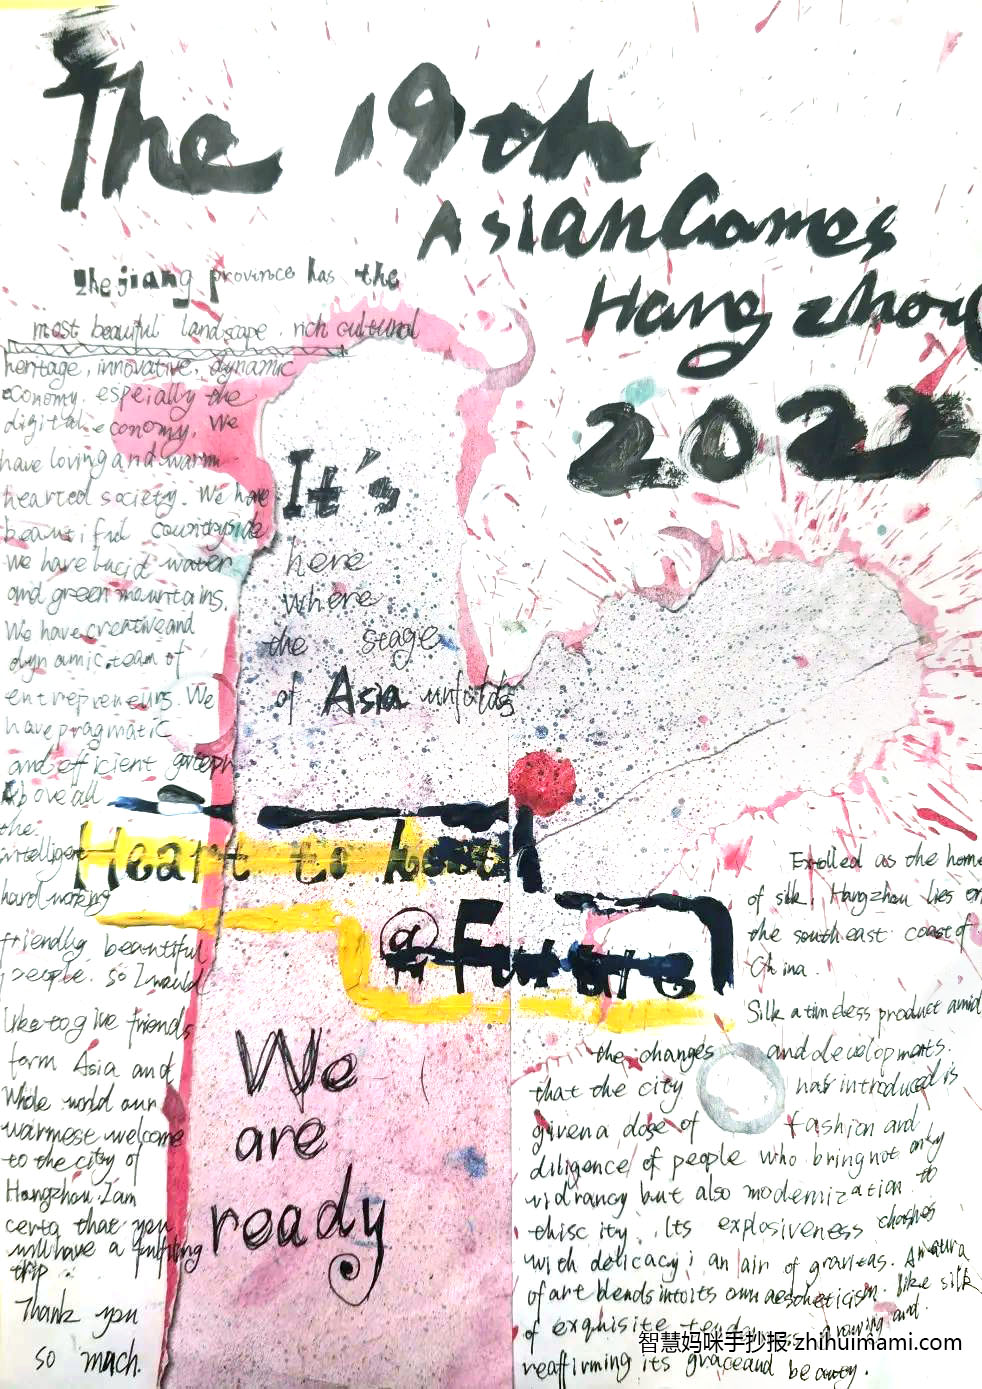 The 19th
Asian Games
Hangzhou
2022
Zhejiang province has the
most beautiful landscape, rich cultural
heritage, innovative, dynamic
economy, espeially the
digital economy. We
have loving and warm
hearted society. We have
beautiful countryside
We have lucid water
and green mountains.
We have creative and
dynamic team of
entrepreneurs. We
have pragmatic
and efficient
Above all
the
intelligent
hard working
friendly beautiful
people. So I would
like to give friends
form Asia and
Whole world our
warmest welcome
to the city of
Hangzhou. I am
certa that you
will have a fulfiling
trip
Thank you
so much.
It's
here
where
the stage
of Asia unfolds
Heart to heart
@Future
We
are
ready
Extolled as the home
of silk, Hangzhou lies on
the southeast coast of
China.
Silk a timeless product amid
the changes and developments.
that the city has introduced is
given a dose of fashion and
diligence of people who bring not only
vidrancy but also modernization to
this city. Its explosiveness clashes
with delicacy; an air of gravitas. A
of art blends into its own aestheticism. like silk
of exquisite growing and
reaffirming its grace and beauty.
智慧妈咪手抄报·zhihuimami.com